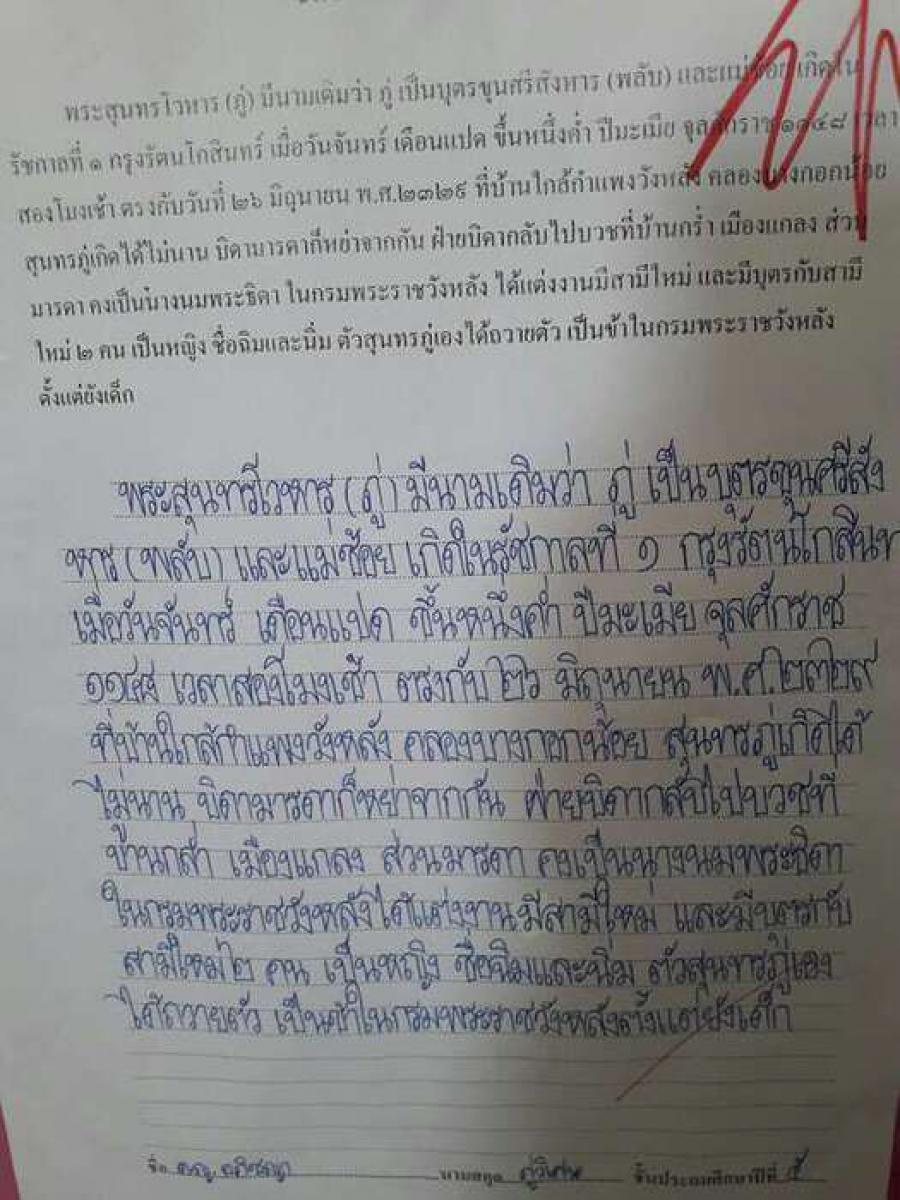 พระสุนทรโวหาร (ภู่) มีนามเดิมว่า ภู่ เป็นบุตรขุนศรีสังหาร (พลับ) และแม่ช้อย เกิดใน
รัชกาลที่ ๑ กรุงรัตนโกสินทร์ เมื่อวันจันทร์ เดือนแปด ขึ้นหนึ่งค่ำ ปีมะเมีย จุลศักราช ๑๑๔๘ เวลา
สองโมงเช้า ตรงกับวันที่ ๒๖ มิถุนายน พ.ศ.๒๓๒๙ ที่บ้านใกล้กำแพงวังหลัง คลองบางกอกน้อย
สุนทรภู่เกิดได้ไม่นาน บิดามารดาก็หย่าจากกัน ฝ่ายบิดากลับไปบวชที่บ้านกร่ำ เมืองแกลง ส่วน
มารดา คงเป็นนางนมพระธิดา ในกรมพระราชวังหลัง ได้แต่งงานมีสามีใหม่ และมีบุตรกับสามี
ใหม่ ๒ คน เป็นหญิง ชื่อฉิมและนิ่ม ตัวสุนทรภู่เองได้ถวายตัว เป็นข้าในกรมพระราชวังหลัง
ตั้งแต่ยังเด็ก
พระสุนทรโวหาร (ภู่) มีนามเดิมว่า ภู่ เป็นบุตรขุนศรีสัง
หาร (พลับ) และแม่ช้อย เกิดในรัชกาลที่ ๑ กรุงรัตนโกสินท
เมื่อวันจันทร์ เดือนแปด ขึ้นหนึ่งค่ำ ปีมะเมีย จุลศักราช
๑๑๔๘ เวลาสองโมงเช้า ตรงกับ ๒๖ มิถุนายน พ.ศ.๒๓๒๙
ที่บ้านใกล้กำแพงวังหลัง คลองบางกอกน้อย สุนทรภู่เกิดได้
ไม่นาน บิดามารดาก็หย่าจากกัน ฝ่ายบิดากลับไปบวชที่
บ้านกล่ำ เมืองแกลง ส่วนมารดา คงเป็นนางนมพระธิดา
ในกรมพระราชวังหลังได้แต่งงานมีสามีใหม่ และมีบุตรกับ
สามีใหม่๒ คน เป็นหญิง ชื่อฉิมและนิ่ม ตัวสุนทรภู่เอง
ได้ถวายตัว เป็นข้าในกรมพระราชวังหลังตั้งแต่ยังเด็ก
ชื่อ นามสกุล ชั้นประถมศึกษาปีที่ ๕